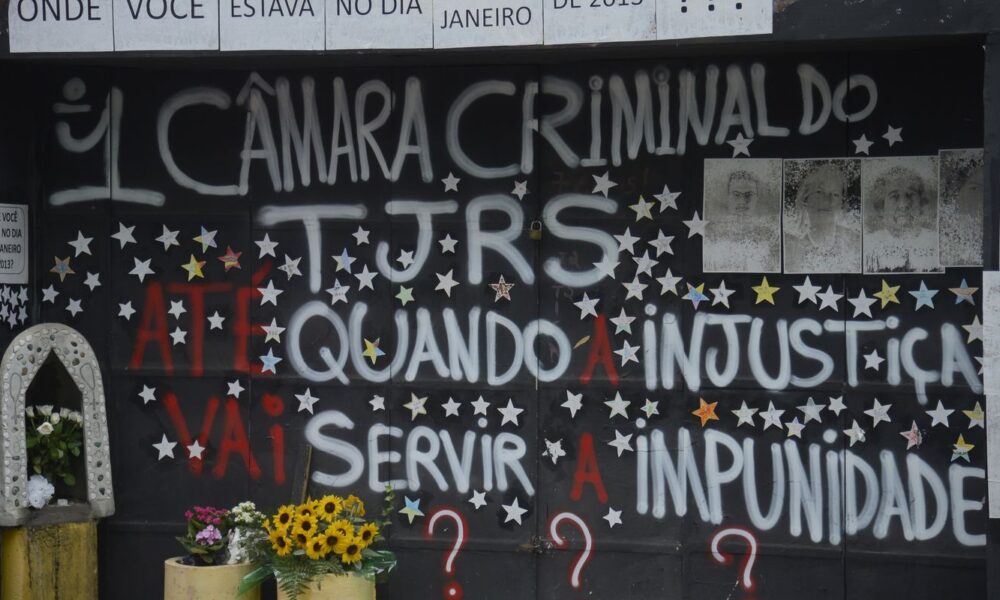 ONDE VOCÊ ESTAVA NO DIA JANEIRO DE 2013 ???
1 CÂMARA CRIMINAL DO
TJRS
ATÉ QUANDO A INJUSTIÇA
VAI SERVIR A IMPUNIDADE
? ? ?
E VOCÊ
NO DIA
JANEIRO
2013?